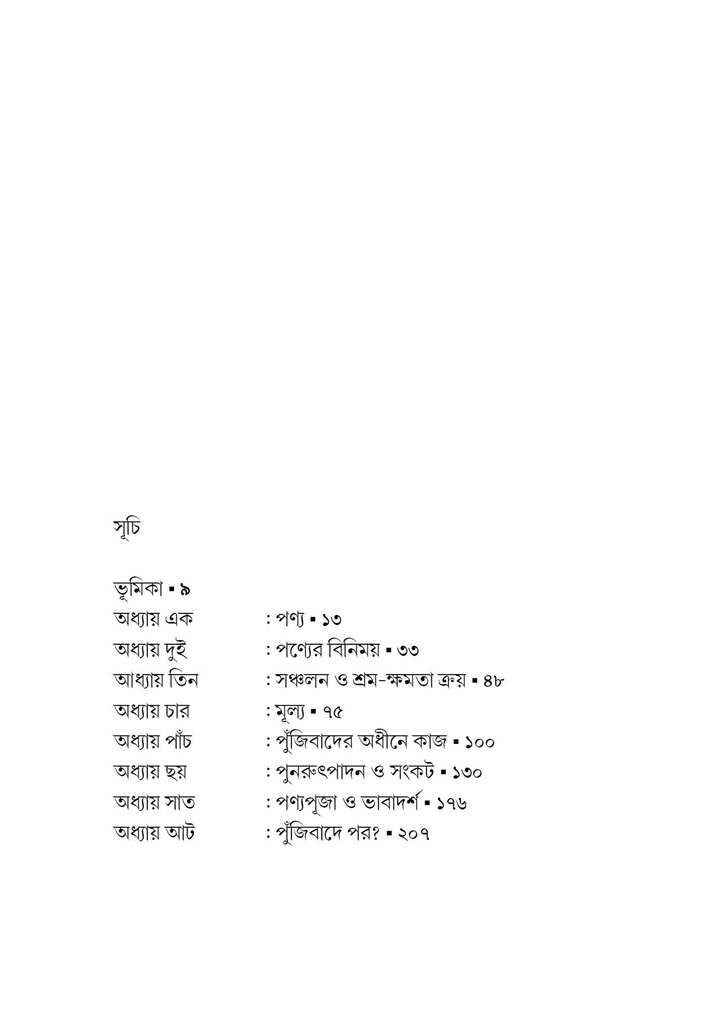 সূচি
ভূমিকা ▪ ৯
অধ্যায় এক : পণ্য ▪ ১৩
অধ্যায় দুই : পণ্যের বিনিময় ▪ ৩৩
আধ্যায় তিন : সঞ্চলন ও শ্রম-ক্ষমতা ক্রয় ▪ ৪৮
অধ্যায় চার : মূল্য ▪ ৭৫
অধ্যায় পাঁচ : পুঁজিবাদের অধীনে কাজ ▪ ১০০
অধ্যায় ছয় : পুনরুৎপাদন ও সংকট ▪ ১৩০
অধ্যায় সাত : পণ্যপূজা ও ভাবাদর্শ ▪ ১৭৬
অধ্যায় আট : পুঁজিবাদে পর? ▪ ২০৭